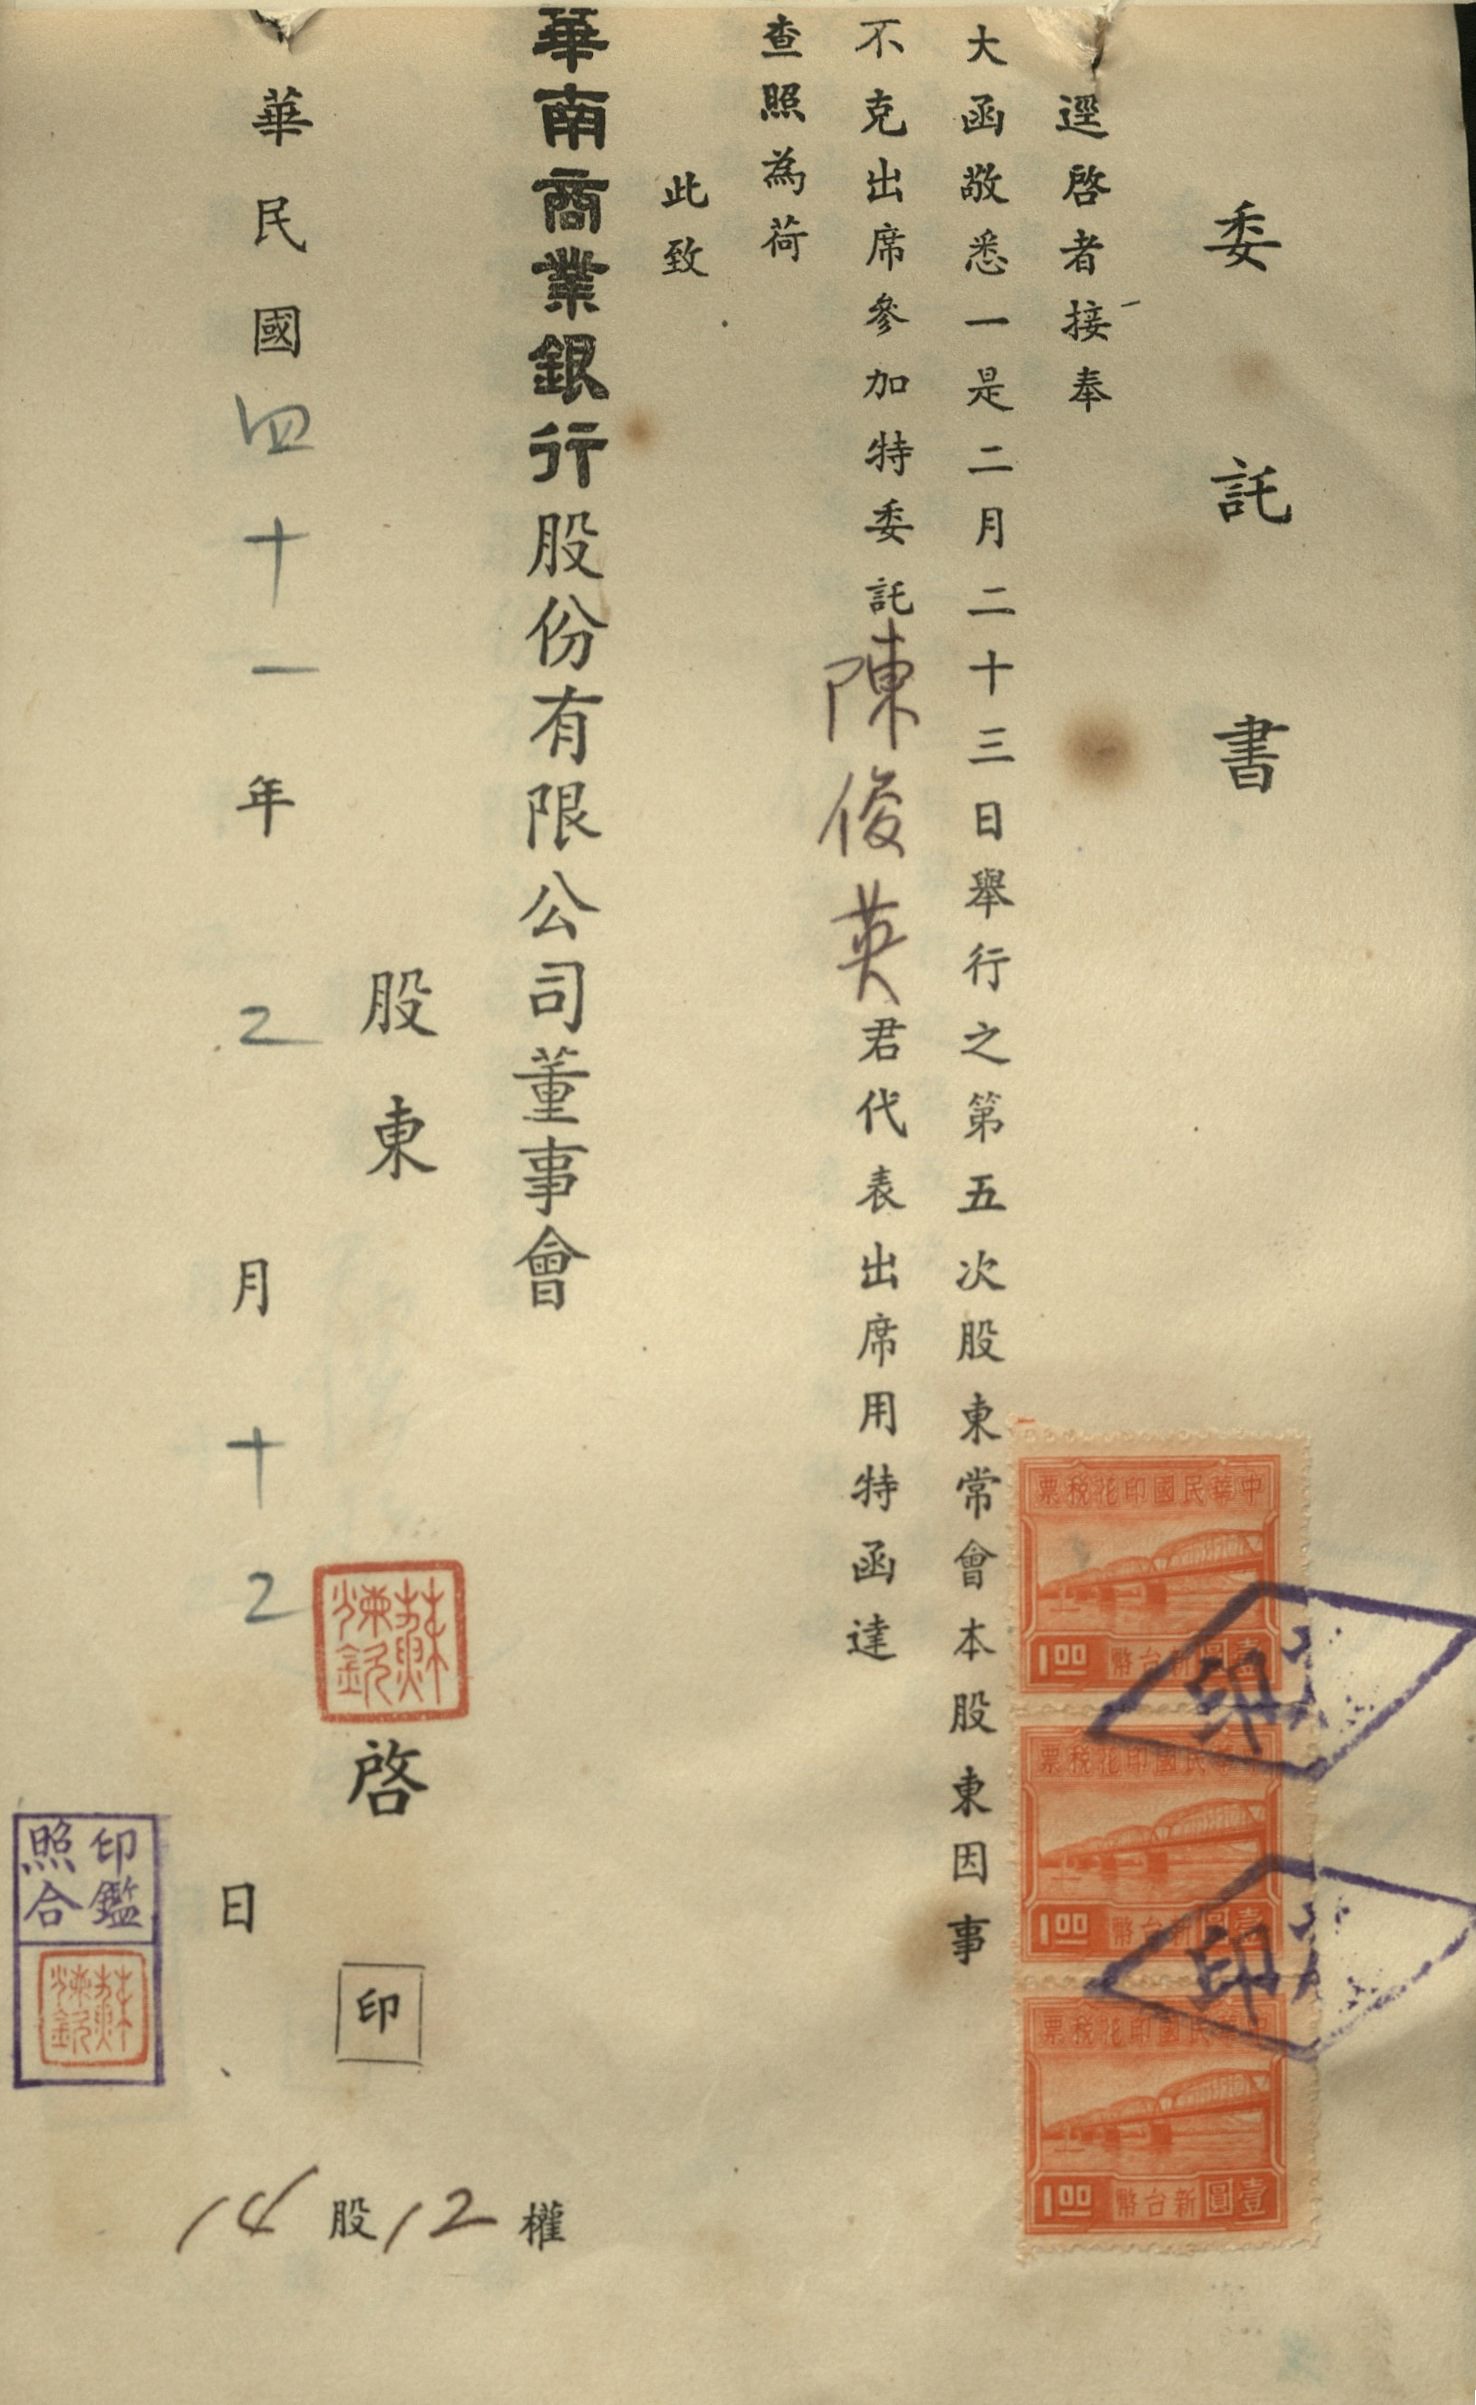 委託書
逕啓者接奉
大函敬悉一是二月二十三日舉行之第五次股東常會本股東因事
不克出席參加特委託陳俊英君代表出席用特函達
查照為荷
此致
華南商業銀行股份有限公司董事會
股東 啓 印
華民國四十一年2月十2日
14股12權
印鑑
照合
中華民國印花稅票
1.00 壹圓新台幣
印
華民國印花稅票
1.00 壹圓新台幣
印
中華民國印花稅票
1.00 壹圓新台幣